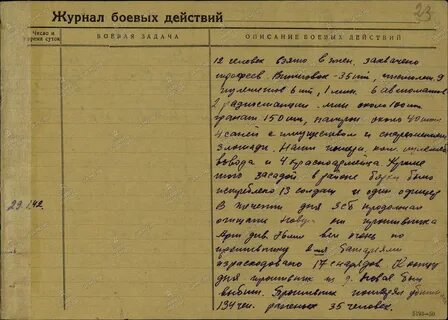 23
Журнал боевых действий
Число и
время суток
БОЕВАЯ ЗАДАЧА
ОПИСАНИЕ БОЕВЫХ ДЕЙСТВИЙ
12 человек взято в плен. захвачено
трофеев. Винтовок - 35 шт,
пулеметов 6 шт, 1 мин. 6 автоматов
2 радиостанции. мин около 100 шт.
гранат 150 шт, патрон около 40
4 саней с имуществом и снаряжением
Наши потери, ком.
взвода и 4 красноармейца. Кроме
того засадой в районе было
истреблено 13 солдат и один офицер
29.1.42.
В течении дня 3 сб продолжал
очищать от противника
Арт. див. вел огонь по
противнику батареями
израсходовано 17 снарядов. К концу
дня противник из д. Новая был
выбит. Противник потерял убит.
134 чел. раненых 35 человек.